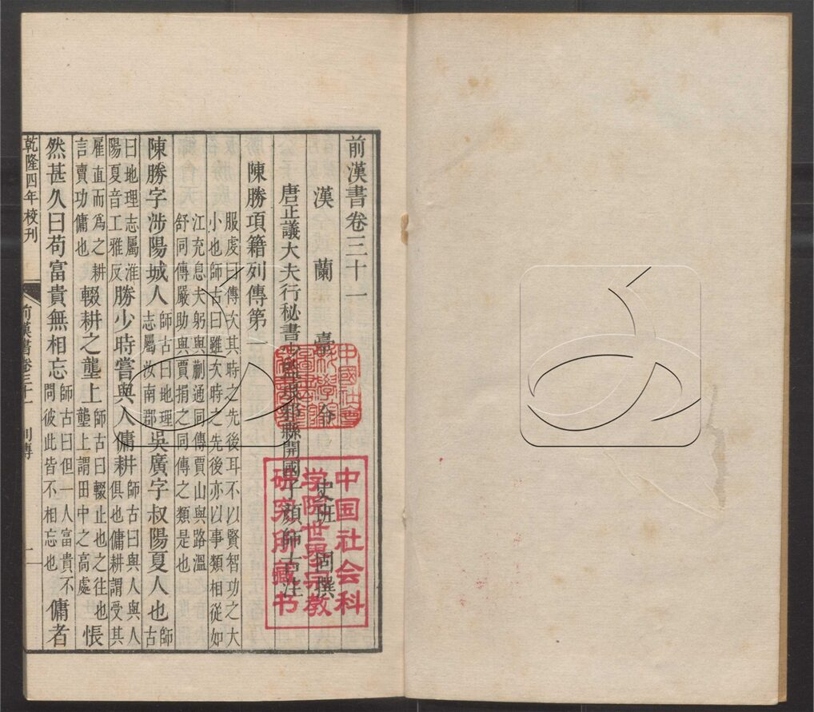 前漢書卷三十一
漢蘭臺令史班固撰
唐正議大夫行秘書少監琅邪縣開國子顏師古注
陳勝項籍列傳第一
服虔曰傳次其時之先後耳不以賢智功之大
小也師古曰雖次時之先後亦以事類相從如
江充息夫躬與蒯通同傳賈山與路溫
舒同傳嚴助與賈捐之同傳之類是也
陳勝字涉陽城人師古曰地理志屬汝南郡吳廣字叔陽夏人也師古
曰地理志屬淮陽夏音工雅反勝少時嘗與人傭耕師古曰與人與人俱也傭耕謂受其
雇直而為之耕言賣功傭也輟耕之壟上師古曰輟止也之往也壟上謂田中之高處悵
然甚久曰苟富貴無相忘師古曰但一人富貴不問彼此皆不相忘也傭者
乾隆四年校刊
前漢書卷三十一 列傳 一
中国社会科
学院世界宗教
研究所藏书